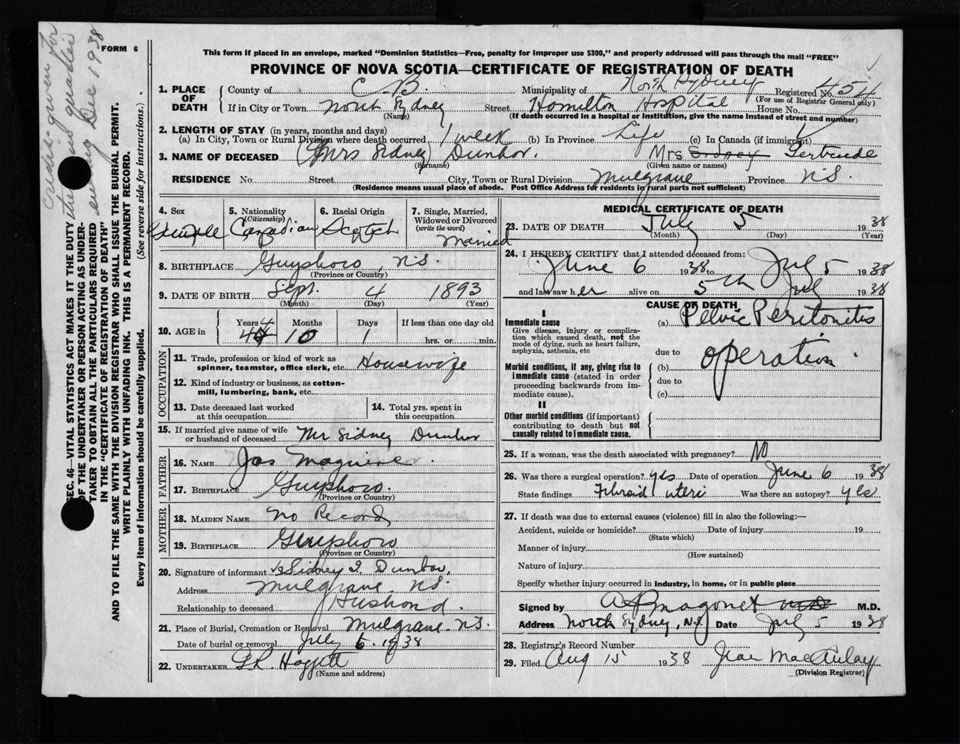 FORM 6
This form if placed in an envelope, marked "Dominion Statistics—Free, penalty for improper use $300," and properly addressed will pass through the mail "FREE"
PROVINCE OF NOVA SCOTIA—CERTIFICATE OF REGISTRATION OF DEATH
1. PLACE OF DEATH
County of C.B. Municipality of North Sydney Registered No. 454
(For use of Registrar General only)
If in City or Town North Sydney Street Hamilton Hospital House No.
(Name) (If death occurred in a hospital or institution, give the name instead of street and number)
2. LENGTH OF STAY (in years, months and days)
(a) In City, Town or Rural Division where death occurred 1 week (b) in Province Life (c) In Canada (if immigrant)
3. NAME OF DECEASED (Mrs Sidney) Dunbar. Mrs Sidney Gertrude
(Surname) (Given name or names)
RESIDENCE No. Street City, Town or Rural Division Mulgrave Province N.S.
(Residence means usual place of abode. Post Office Address for residents in rural parts not sufficient)
4. Sex Female
5. Nationality (Citizenship) Canadian
6. Racial Origin Scotch
7. Single, Married, Widowed or Divorced (write the word) Married
8. BIRTHPLACE Guysboro, N.S.
(Province or Country)
9. DATE OF BIRTH Sept. 4 1893
(Month) (Day) (Year)
10. AGE in Years 44 Months 10 Days 1 If less than one day old
hrs. or min.
OCCUPATION
11. Trade, profession or kind of work as spinner, teamster, office clerk, etc. Housewife
12. Kind of industry or business, as cotton-mill, lumbering, bank, etc.
13. Date deceased last worked at this occupation
14. Total yrs. spent in this occupation
15. If married give name of wife or husband of deceased Mr Sidney Dunbar
FATHER
16. NAME Jas Maguire
17. BIRTHPLACE Guysboro.
(Province or Country)
MOTHER
18. MAIDEN NAME No Record
19. BIRTHPLACE Guysboro
(Province or Country)
20. Signature of informant Sidney I. Dunbar,
Address Mulgrave N.S.
Relationship to deceased Husband.
21. Place of Burial, Cremation or Removal Mulgrave N.S.
Date of burial or removal July 6. 1938
22. UNDERTAKER
(Name and address)
MEDICAL CERTIFICATE OF DEATH
23. DATE OF DEATH July 5 1938
(Month) (Day) (Year)
24. I HEREBY CERTIFY that I attended deceased from:
June 6 1938 to July 5 1938
and last saw her alive on 5th July 1938
CAUSE OF DEATH
I
Immediate cause
Give disease, injury or complication which caused death, not the mode of dying, such as heart failure, asphyxia, asthenia, etc
(a) Pelvic Peritonitis
due to
Morbid conditions, if any, giving rise to immediate cause (stated in order proceeding backwards from immediate cause).
(b) operation
due to
(c)
II
Other morbid conditions (if important) contributing to death but not causally related to immediate cause.
25. If a woman, was the death associated with pregnancy? No
26. Was there a surgical operation? yes Date of operation June 6 1938
State findings Fibroid uteri Was there an autopsy? yes
27. If death was due to external causes (violence) fill in also the following:—
Accident, suicide or homicide? Date of injury 19
(State which)
Manner of injury
(How sustained)
Nature of injury
Specify whether injury occurred in industry, in home, or in public place
Signed by M.D.
Address North Sydney, N.S. Date July 5 1938
28. Registrar's Record Number
29. Filed Aug 15 1938 Jean MacAulay
(Division Registrar)
SEC. 46—VITAL STATISTICS ACT MAKES IT THE DUTY
OF THE UNDERTAKER OR PERSON ACTING AS UNDER-
TAKER TO OBTAIN ALL THE PARTICULARS REQUIRED
IN THE "CERTIFICATE OF REGISTRATION OF DEATH"
AND TO FILE THE SAME WITH THE DIVISION REGISTRAR WHO SHALL ISSUE THE BURIAL PERMIT.
WRITE PLAINLY WITH UNFADING INK. THIS IS A PERMANENT RECORD.
Every item of information should be carefully supplied. (See reverse side for instructions.)
ending Dec 1938